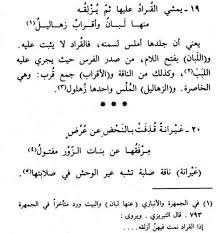 ١٩ – يمشي القُراد عليها ثمّ يُزْلِقُه
منها لَبانٌ وأقرابٌ زهاليلُ(١)
يعني أن جلدها أملس لسمنه، فالقُراد لا يثبت عليه.
و(اللَّبان) بفتح اللام، من صدر الفرس حيث يجري عليه
اللبَبُ، وكذلك من الناقة و(الأقراب) جمع قُرب: وهي
الخاصرة. و(الزهاليل) المُلْس واحدها زُهلول.
* * *
٢٠ – عَيْرانةٌ قُذفَتْ بالنَّحْضِ عن عُرُضٍ
مِرْفَقُها عن بنات الزَّوْرِ مفتولُ(٤)
(عَيْرانة) ناقة صلبة تشبه عير الوحش في صلابتها(٥).
(١) في الجمهرة والأنباري (عنها لبان) والبيت ورد متأخراً في الجمهرة
٧٩٣ . قال التبريزي . ويروى :
إذا القراد نمت فيهن أزلقه